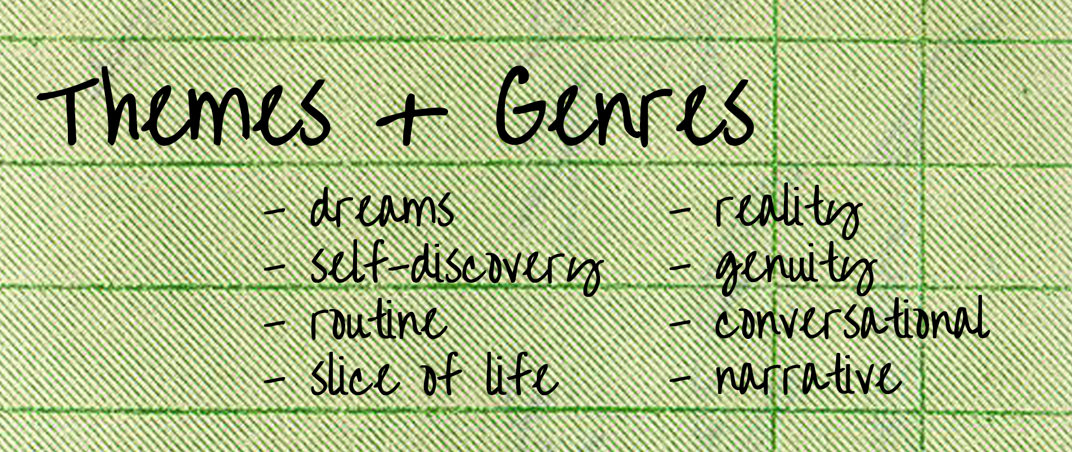 Themes + Genres
- dreams
- self-discovery
- routine
- slice of life
- reality
- genuity
- conversational
- narrative